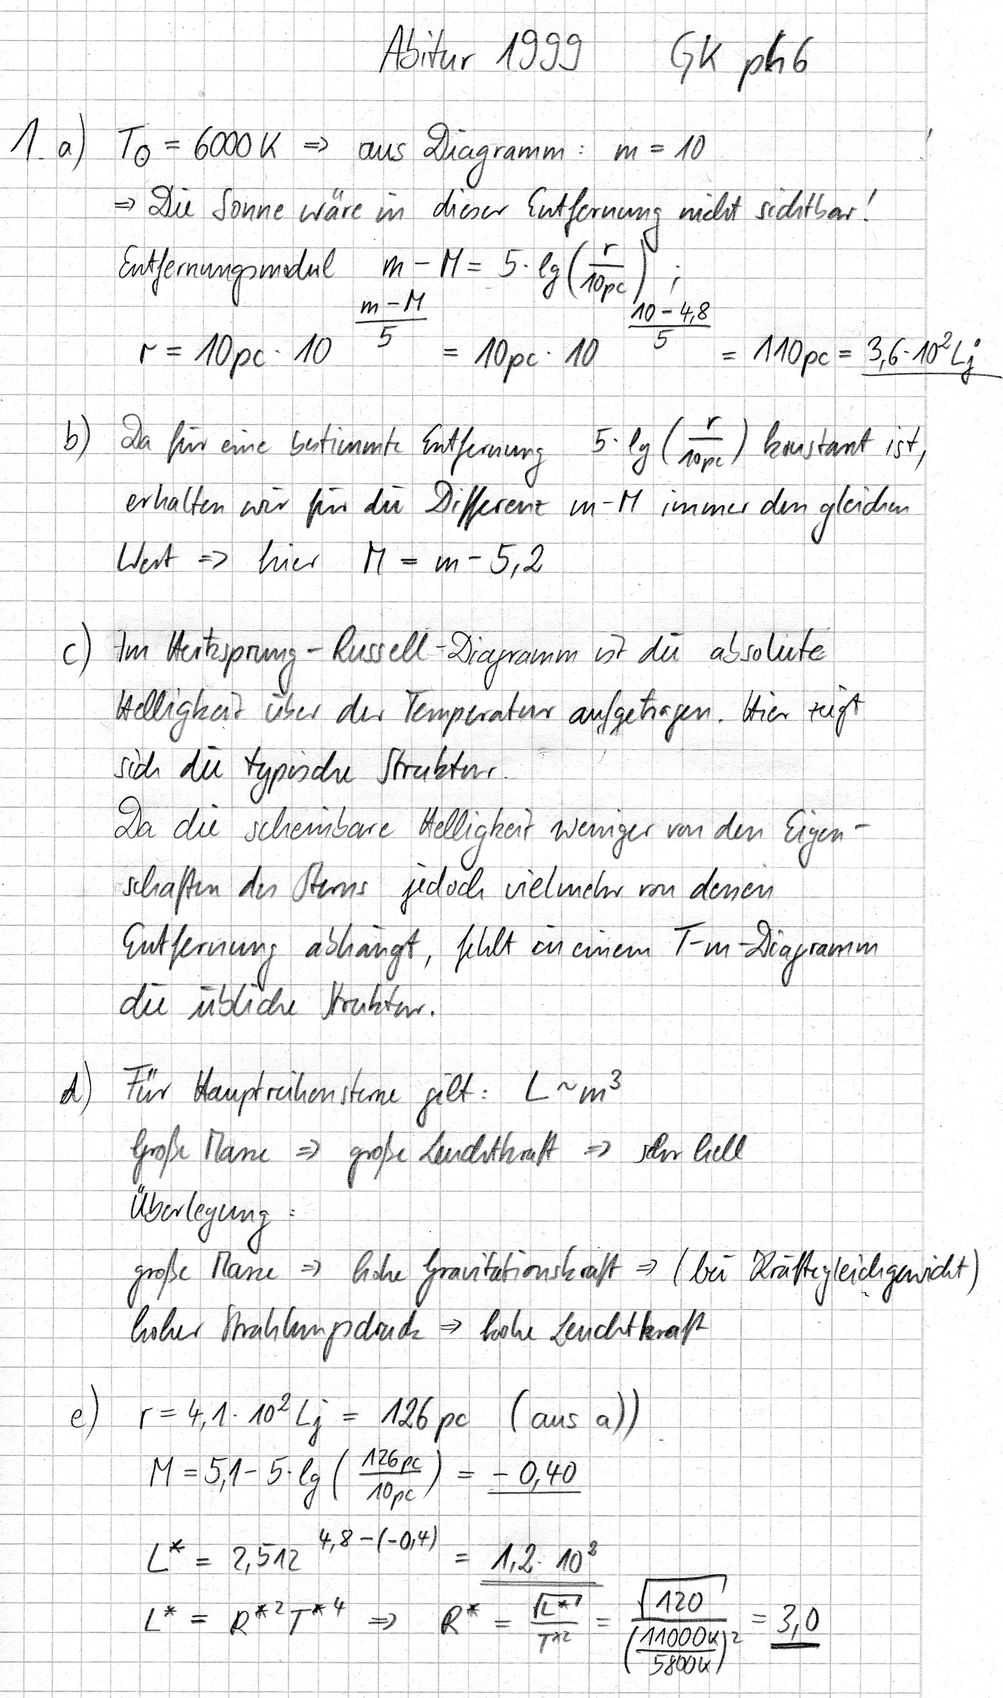 Abitur 1999 GK ph6
1. a) T⊙ = 6000K ⇒ aus Diagramm: m = 10
⇒ Die Sonne wäre in dieser Entfernung nicht sichtbar!
Entfernungsmodul m - M = 5 · lg(r/10pc) ;
r = 10pc · 10^((m-M)/5) = 10pc · 10^((10-4,8)/5) = 110pc = 3,6·10² Lj
b) Da für eine bestimmte Entfernung 5·lg(r/10pc) konstant ist,
erhalten wir für die Differenz m-M immer den gleichen
Wert ⇒ hier M = m - 5,2
c) Im Hertzsprung-Russell-Diagramm ist die absolute
Helligkeit über der Temperatur aufgetragen. Hier zeigt
sich die typische Struktur.
Da die scheinbare Helligkeit weniger von den Eigen-
schaften des Sterns jedoch vielmehr von denen
Entfernung abhängt, fehlt in einem T-m-Diagramm
die übliche Struktur.
d) Für Hauptreihensterne gilt: L ~ m³
Große Masse ⇒ große Leuchtkraft ⇒ sehr hell
Überlegung:
große Masse ⇒ hohe Gravitationskraft ⇒ (bei Kräftegleichgewicht)
hoher Strahlungsdruck ⇒ hohe Leuchtkraft
e) r = 4,1 · 10² Lj = 126 pc (aus a))
M = 5,1 - 5·lg(126pc/10pc) = - 0,40
L* = 2,512^(4,8-(-0,4)) = 1,2 · 10²
L* = R*² T*⁴ ⇒ R* = √L*/T*² = √120/(11000K/5800K)² = 3,0